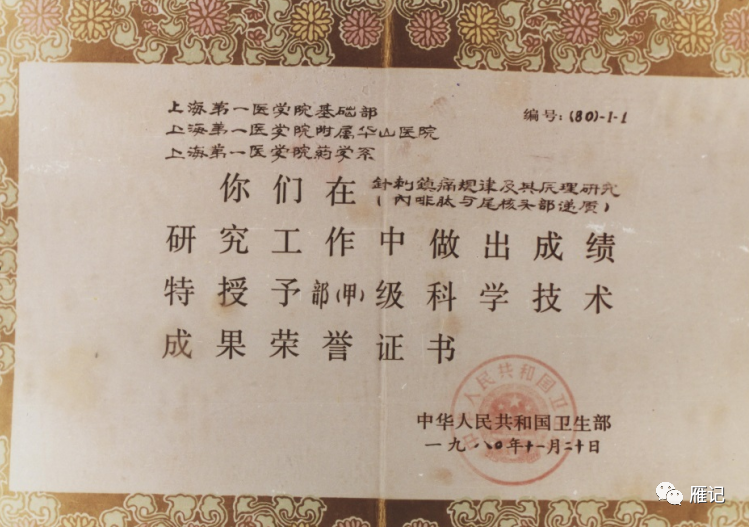 上海第一医学院基础部
编号:(80)-1-1
上海第一医学院附属华山医院
上海第一医学院药学系
你们在 針刺鎮痛規律及其原理研究
(内啡肽与尾核头部递质)
研究工作中做出成绩
特授予部(甲)级科学技术
成果荣誉证书
中华人民共和国卫生部
一九八〇年十一月二十日
雁记